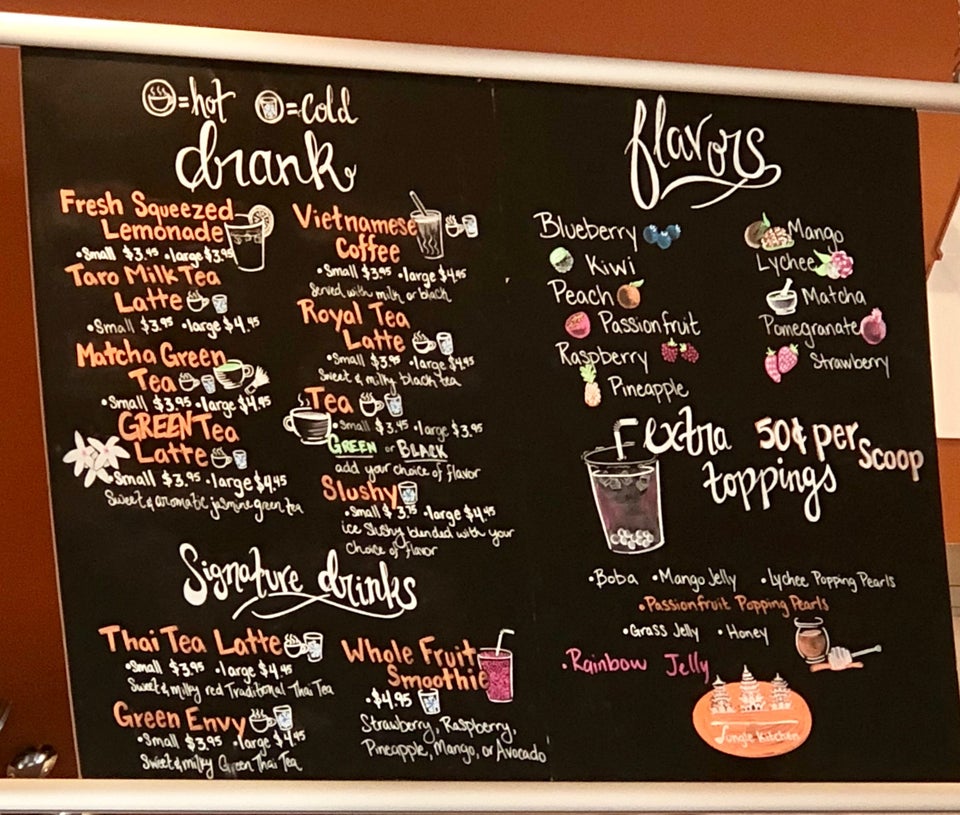 =hot =cold
drank
Fresh Squeezed
Lemonade
•Small $3.45 •large $3.95
Taro Milk Tea
Latte
•Small $3.95 •large $4.45
Matcha Green
Tea
•Small $3.95 •large $4.95
GREEN Tea
Latte
•Small $3.95 •large $4.45
Sweet & aromatic jasmine green tea
Vietnamese
Coffee
•Small $3.95 •large $4.45
Served with milk or black
Royal Tea
Latte
•Small $3.95 •large $4.45
Sweet & milky black tea
Tea
•Small $3.45 •large $3.95
GREEN or BLACK
add your choice of flavor
Slushy
•Small $3.75 •large $4.45
ice Slushy blended with your
choice of flavor
Signature drinks
Thai Tea Latte
•Small $3.95 •large $4.45
Sweet & milky red Traditional Thai Tea
Green Envy
•Small $3.95 •large $4.45
Sweet & milky Green Thai Tea
Whole Fruit
Smoothie
•$4.95
Strawberry, Raspberry,
Pineapple, Mango, or Avocado
flavors
Blueberry
Kiwi
Peach
Passionfruit
Raspberry
Pineapple
Mango
Lychee
Matcha
Pomegranate
Strawberry
extra 50¢ per
toppings Scoop
•Boba •Mango Jelly •Lychee Popping Pearls
•Passionfruit Popping Pearls
•Grass Jelly •Honey
•Rainbow Jelly
Jungle Kitchen